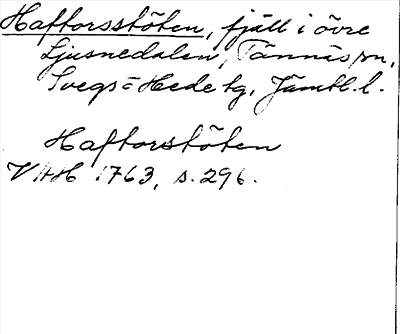 Haftorsstöten, fjäll i övre
Ljusnedalen, Tännäs sn,
Svegs = Hede tg, Jämtl. l.
Haftorstöten
VAH 1763, s. 296.